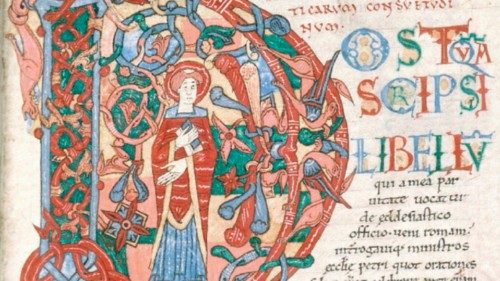 TICARUM CONSUETUDI
NUM.
POSTQVĀ
SCRIPSI
LIBELLŪ
qui a mea par
uitate uocatur
de ecclesiastico
officio. ueni romam.
ministros
petri quot orationes